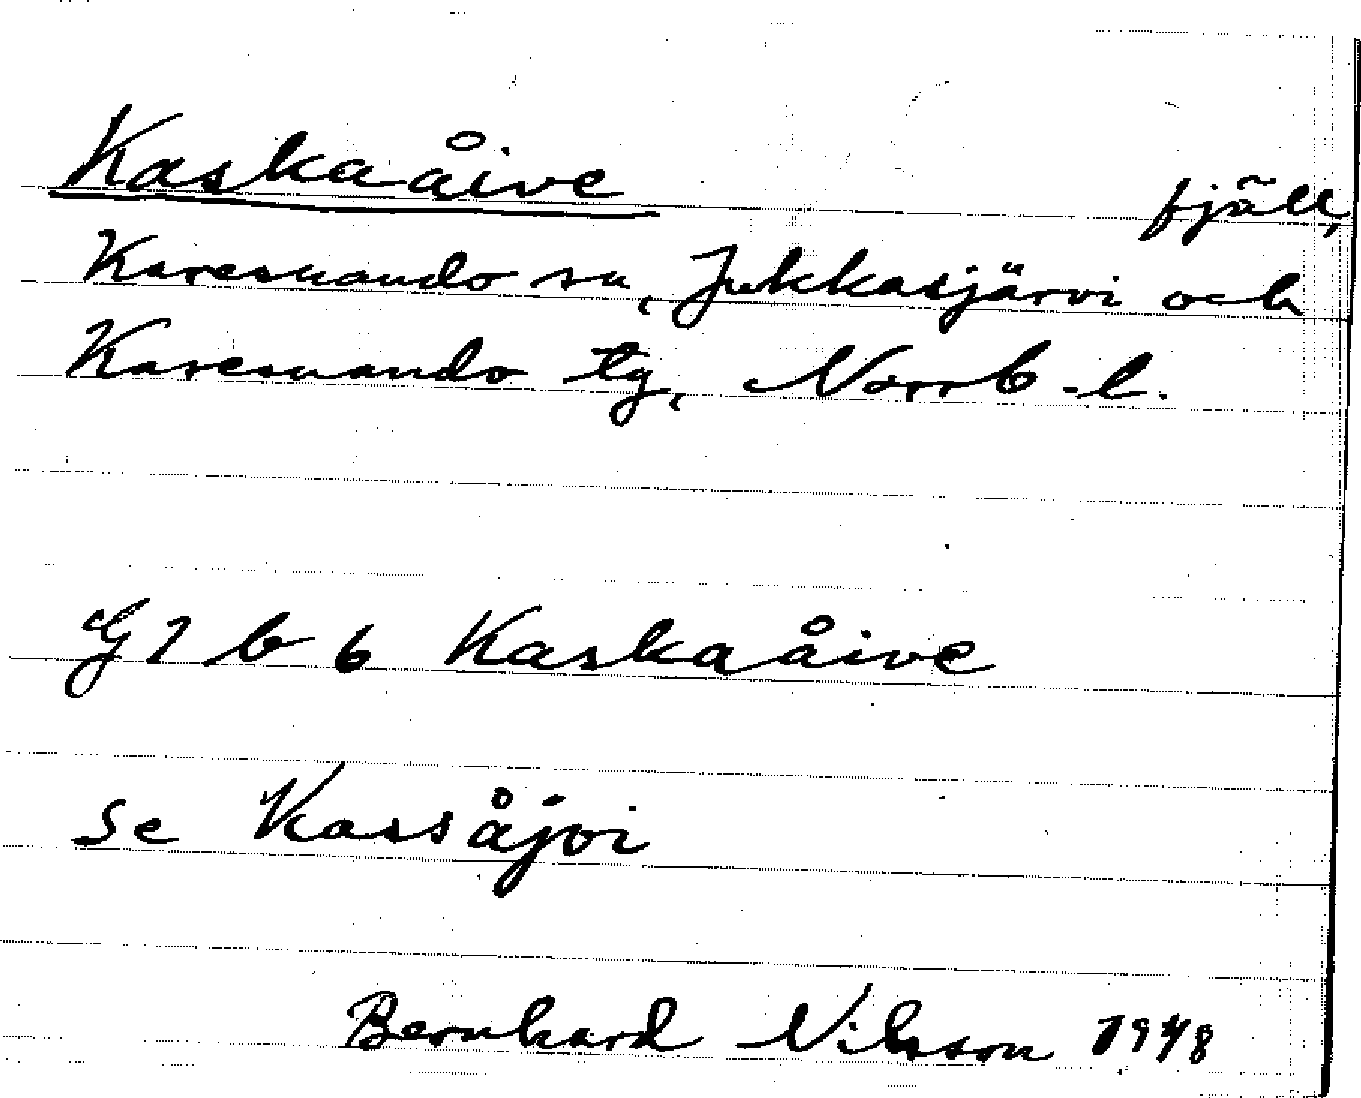 Kaskaåive fjäll,
Karesuando sn, Jukkasjärvi och
Karesuando tg, Norrb. l.
G 7 b 6 Kaskaåive
se Kassåjvi
Bernhard Nilsson 1948